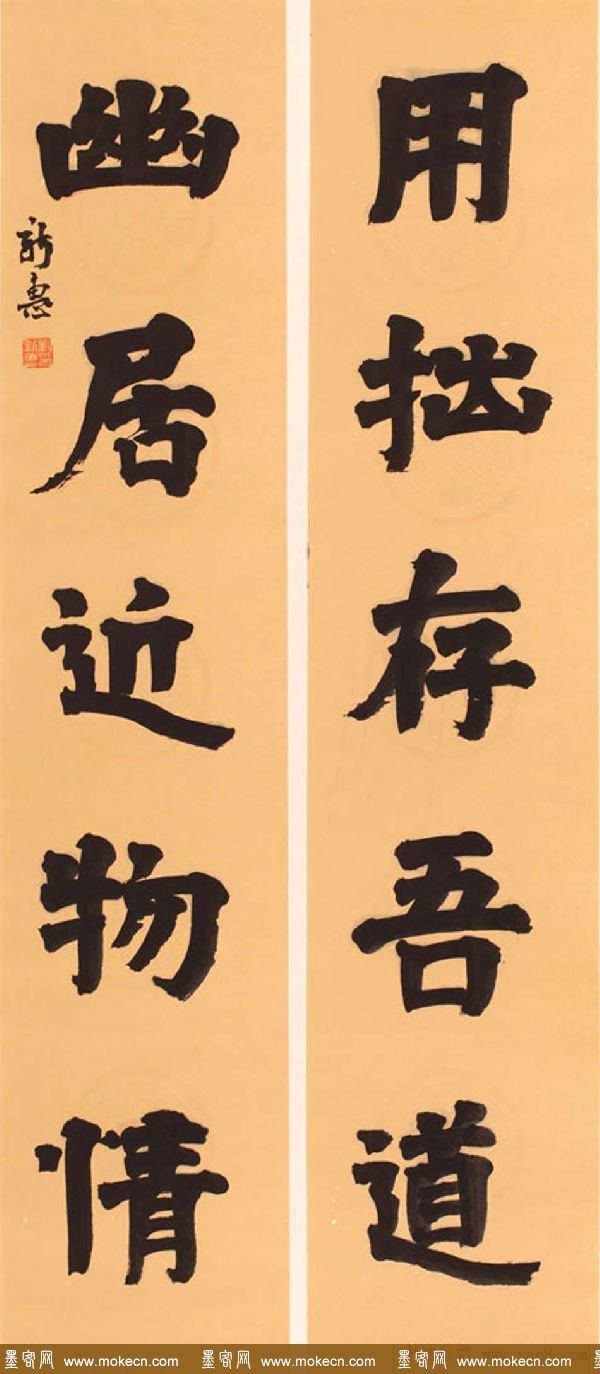 用拙存吾道
幽居近物情
新悳
墨客网 www.mokecn.com 墨客网 www.mokecn.com 墨客网 www.mokecn.com